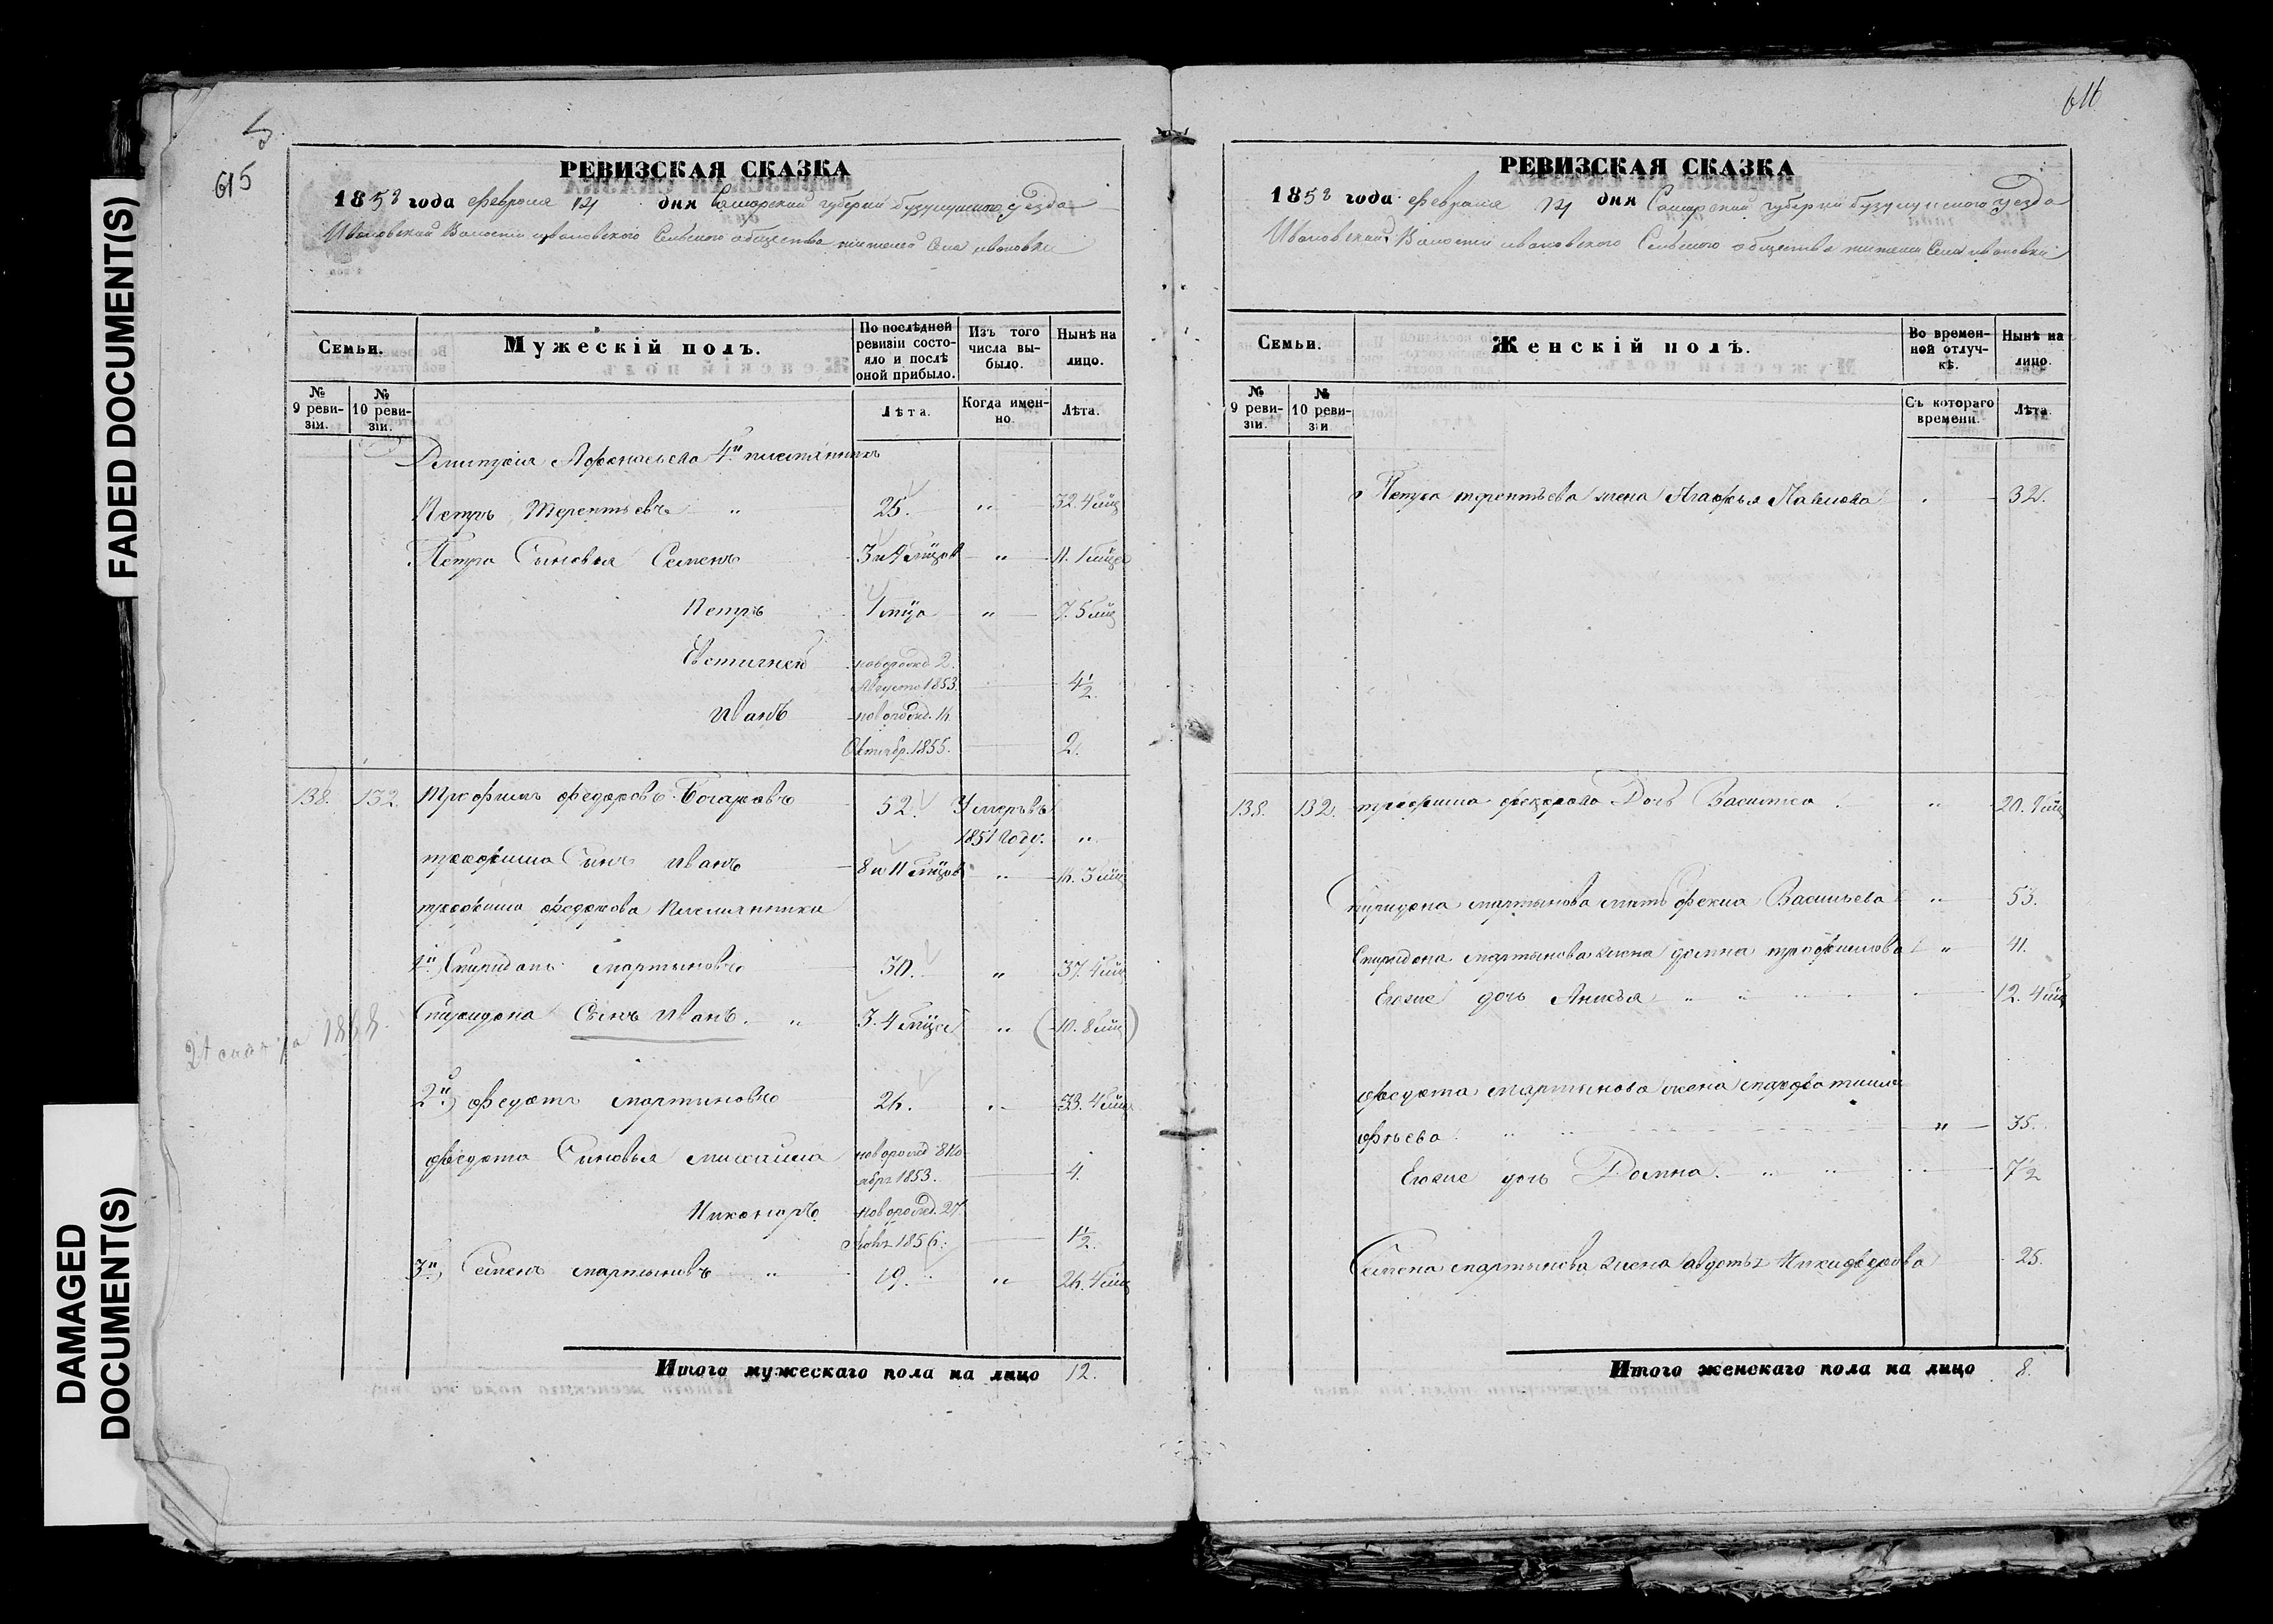 FADED DOCUMENT(S)
DAMAGED
DOCUMENT(S)
615
РЕВИЗСКАЯ СКАЗКА
1858 года февраля 14 дня Самарской губернии бузулуцкого уезда
Ивановской Волости ивановского Сельского общества жителей Села ивановки
Семьи.
Мужескій полъ.
По послѣдней
ревизіи состо-
яло и послѣ
оной прибыло.
Изъ того
числа вы-
было.
Нынѣ на
лицо.
№
9 реви-
зіи.
№
10 реви-
зіи.
Лѣта.
Когда имен-
но.
Лѣта.
Дмитрія Афонасьева 4й племянникъ
Петръ Терентьевъ „ 25. „ 32. 4 мѣц
Петра Сыновья Семенъ 3 и 4 мѣцов „ 11. 1 мѣца
Петръ 1 мѣца „ 7. 5 мѣц
Евстигней новорожд 2.
Августа 1853. 4½
Иванъ новорожд. 14
Октябр. 1855. 2.
138. 132. Трофимъ федоровъ 52. Умеръ въ
1851 Году. „
трофима Сынъ Иванъ 8 и 11 мѣцов „ 16. 3 мѣц
трофима федорова племянники
1й Спиридонъ мартыновъ 30. „ 37. 4 мѣц
Спиридона Сынъ Иванъ. „ 3. 4 мѣца „ (10. 8 мѣц)
1868.
2й) федотъ мартыновъ 26. „ 33. 4 мѣц
федота Сыновья михаила новорожд 8 Но
ябр. 1853. 4.
Никоноръ новорожд. 27
1856. 1½
3й) Семенъ мартыновъ „ 19. „ 26. 4 мѣц
Итого мужескаго пола на лицо 12.
616
РЕВИЗСКАЯ СКАЗКА
1858 года февраля 14 дня Самарской губернии бузулуцкого уезда
Ивановской Волости ивановского Сельского общества жители Села ивановки
Семьи.
Женскій полъ.
Во времен-
ной отлуч-
кѣ.
Нынѣ на
лицо.
№
9 реви-
зіи.
№
10 реви-
зіи
Съ котораго
времени.
Лѣта
Петра терентьева жена Агафья Павлова 32.
138. 132. трофима федорова Дочь Василиса „ 20. 1 мѣц
Спиридона мартынова мать фекла Васильева „ 53.
Спиридона мартынова жена домна трофимова „ 41.
Егоже дочь Анисья „ „ 12. 4 мѣц
федота мартынова жена тимо
фѣева „ 35.
Егоже дочь Домна. „ „ 7½
Семена мартынова жена авдотья Никифорова 25.
Итого женскаго пола на лицо 8.